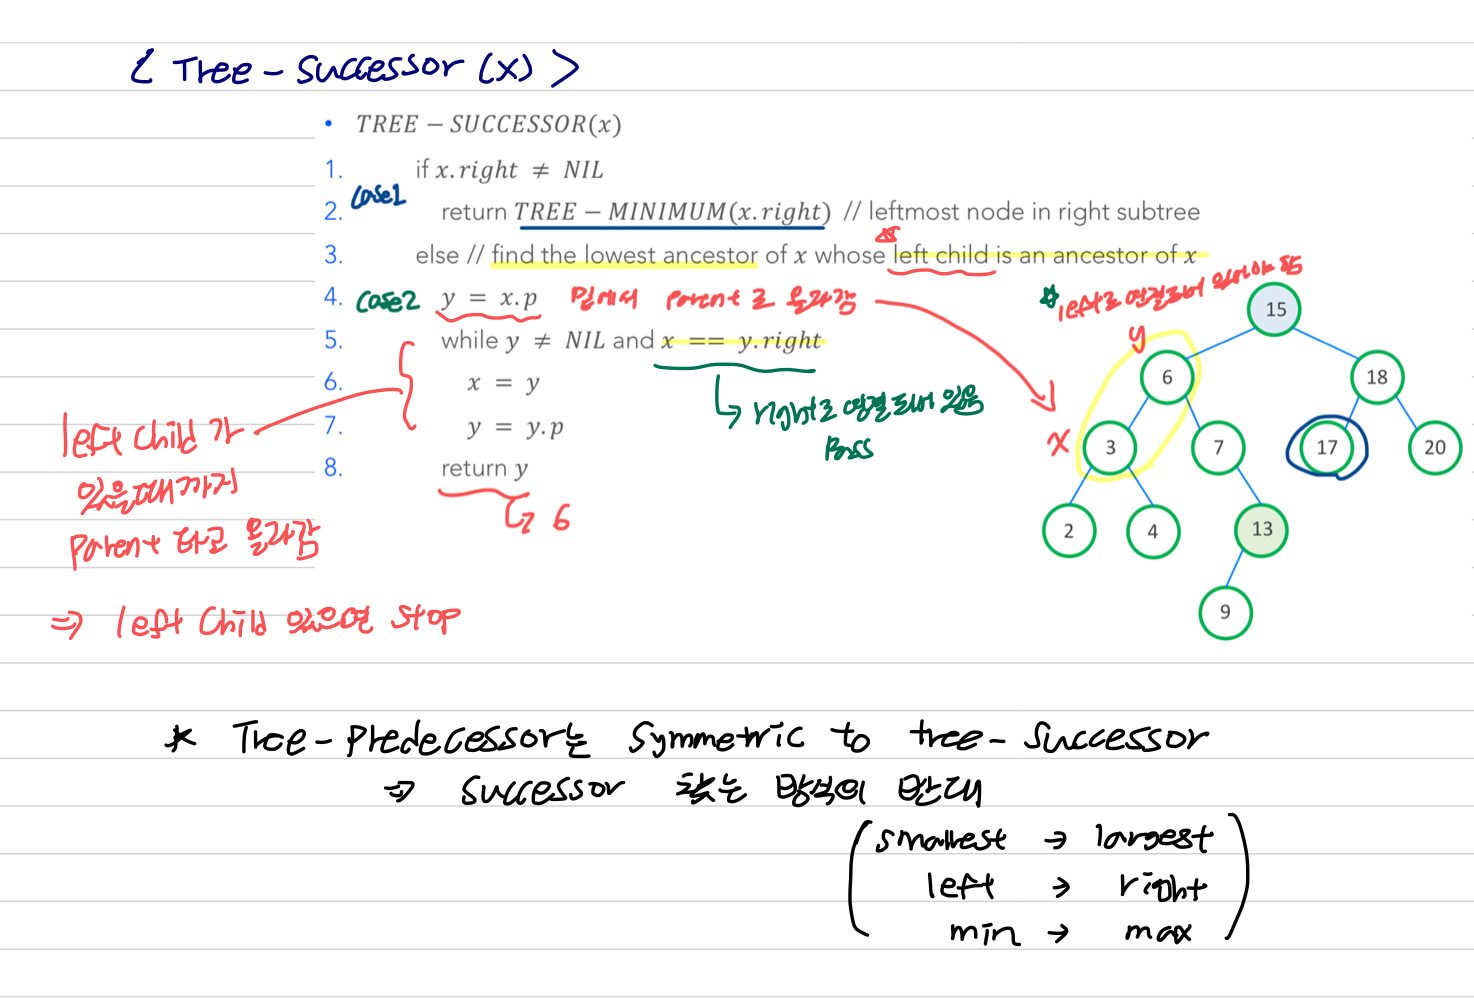 < Tree - Successor (x) >
• TREE − SUCCESSOR(x)
1. if x.right ≠ NIL
case1
2. return TREE − MINIMUM(x.right) // leftmost node in right subtree
3. else // find the lowest ancestor of x whose left child is an ancestor of x
4. case2 y = x.p 밑에서 parent로 올라감
left로 연결되어 있어야 함
5. while y ≠ NIL and x == y.right
6. x = y
→ right로 연결되어 있음
pass
7. y = y.p
8. return y
→ 6
left child가
있을때까지
parent 타고 올라감
⇒ left child 있으면 stop
15
y
6 18
x 3 7 17 20
2 4 13
9
* Tree - Predecessor는 symmetric to tree - successor
⇒ successor 찾는 방식의 반대
smallest → largest
left → right
min → max